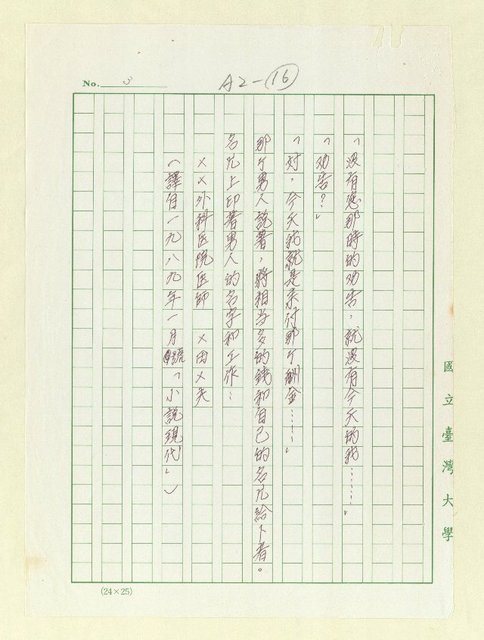 No. 3
A2-(16)
「沒有您那時的劝告，就沒有今天的我……」
「劝告？」
「对，今天我就是來付那个酬金……」
那个男人說著，將相当多的錢和自己的名片給卜者。
名片上印著男人的名字和工作：
××外科医院医師　×田×夫
（譯自一九八九年一月號「小說現代」）
國立臺灣大學
(24×25)